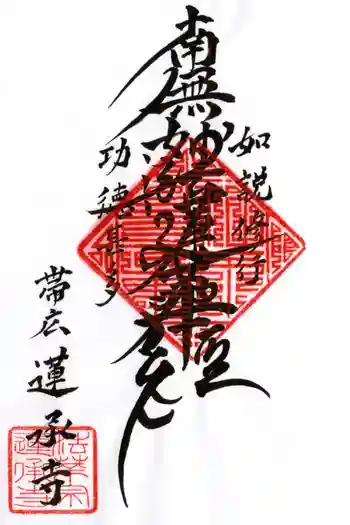 如説修行
南無妙法蓮華經
功徳甚多
帯広 蓮承寺
法華宗
蓮承寺